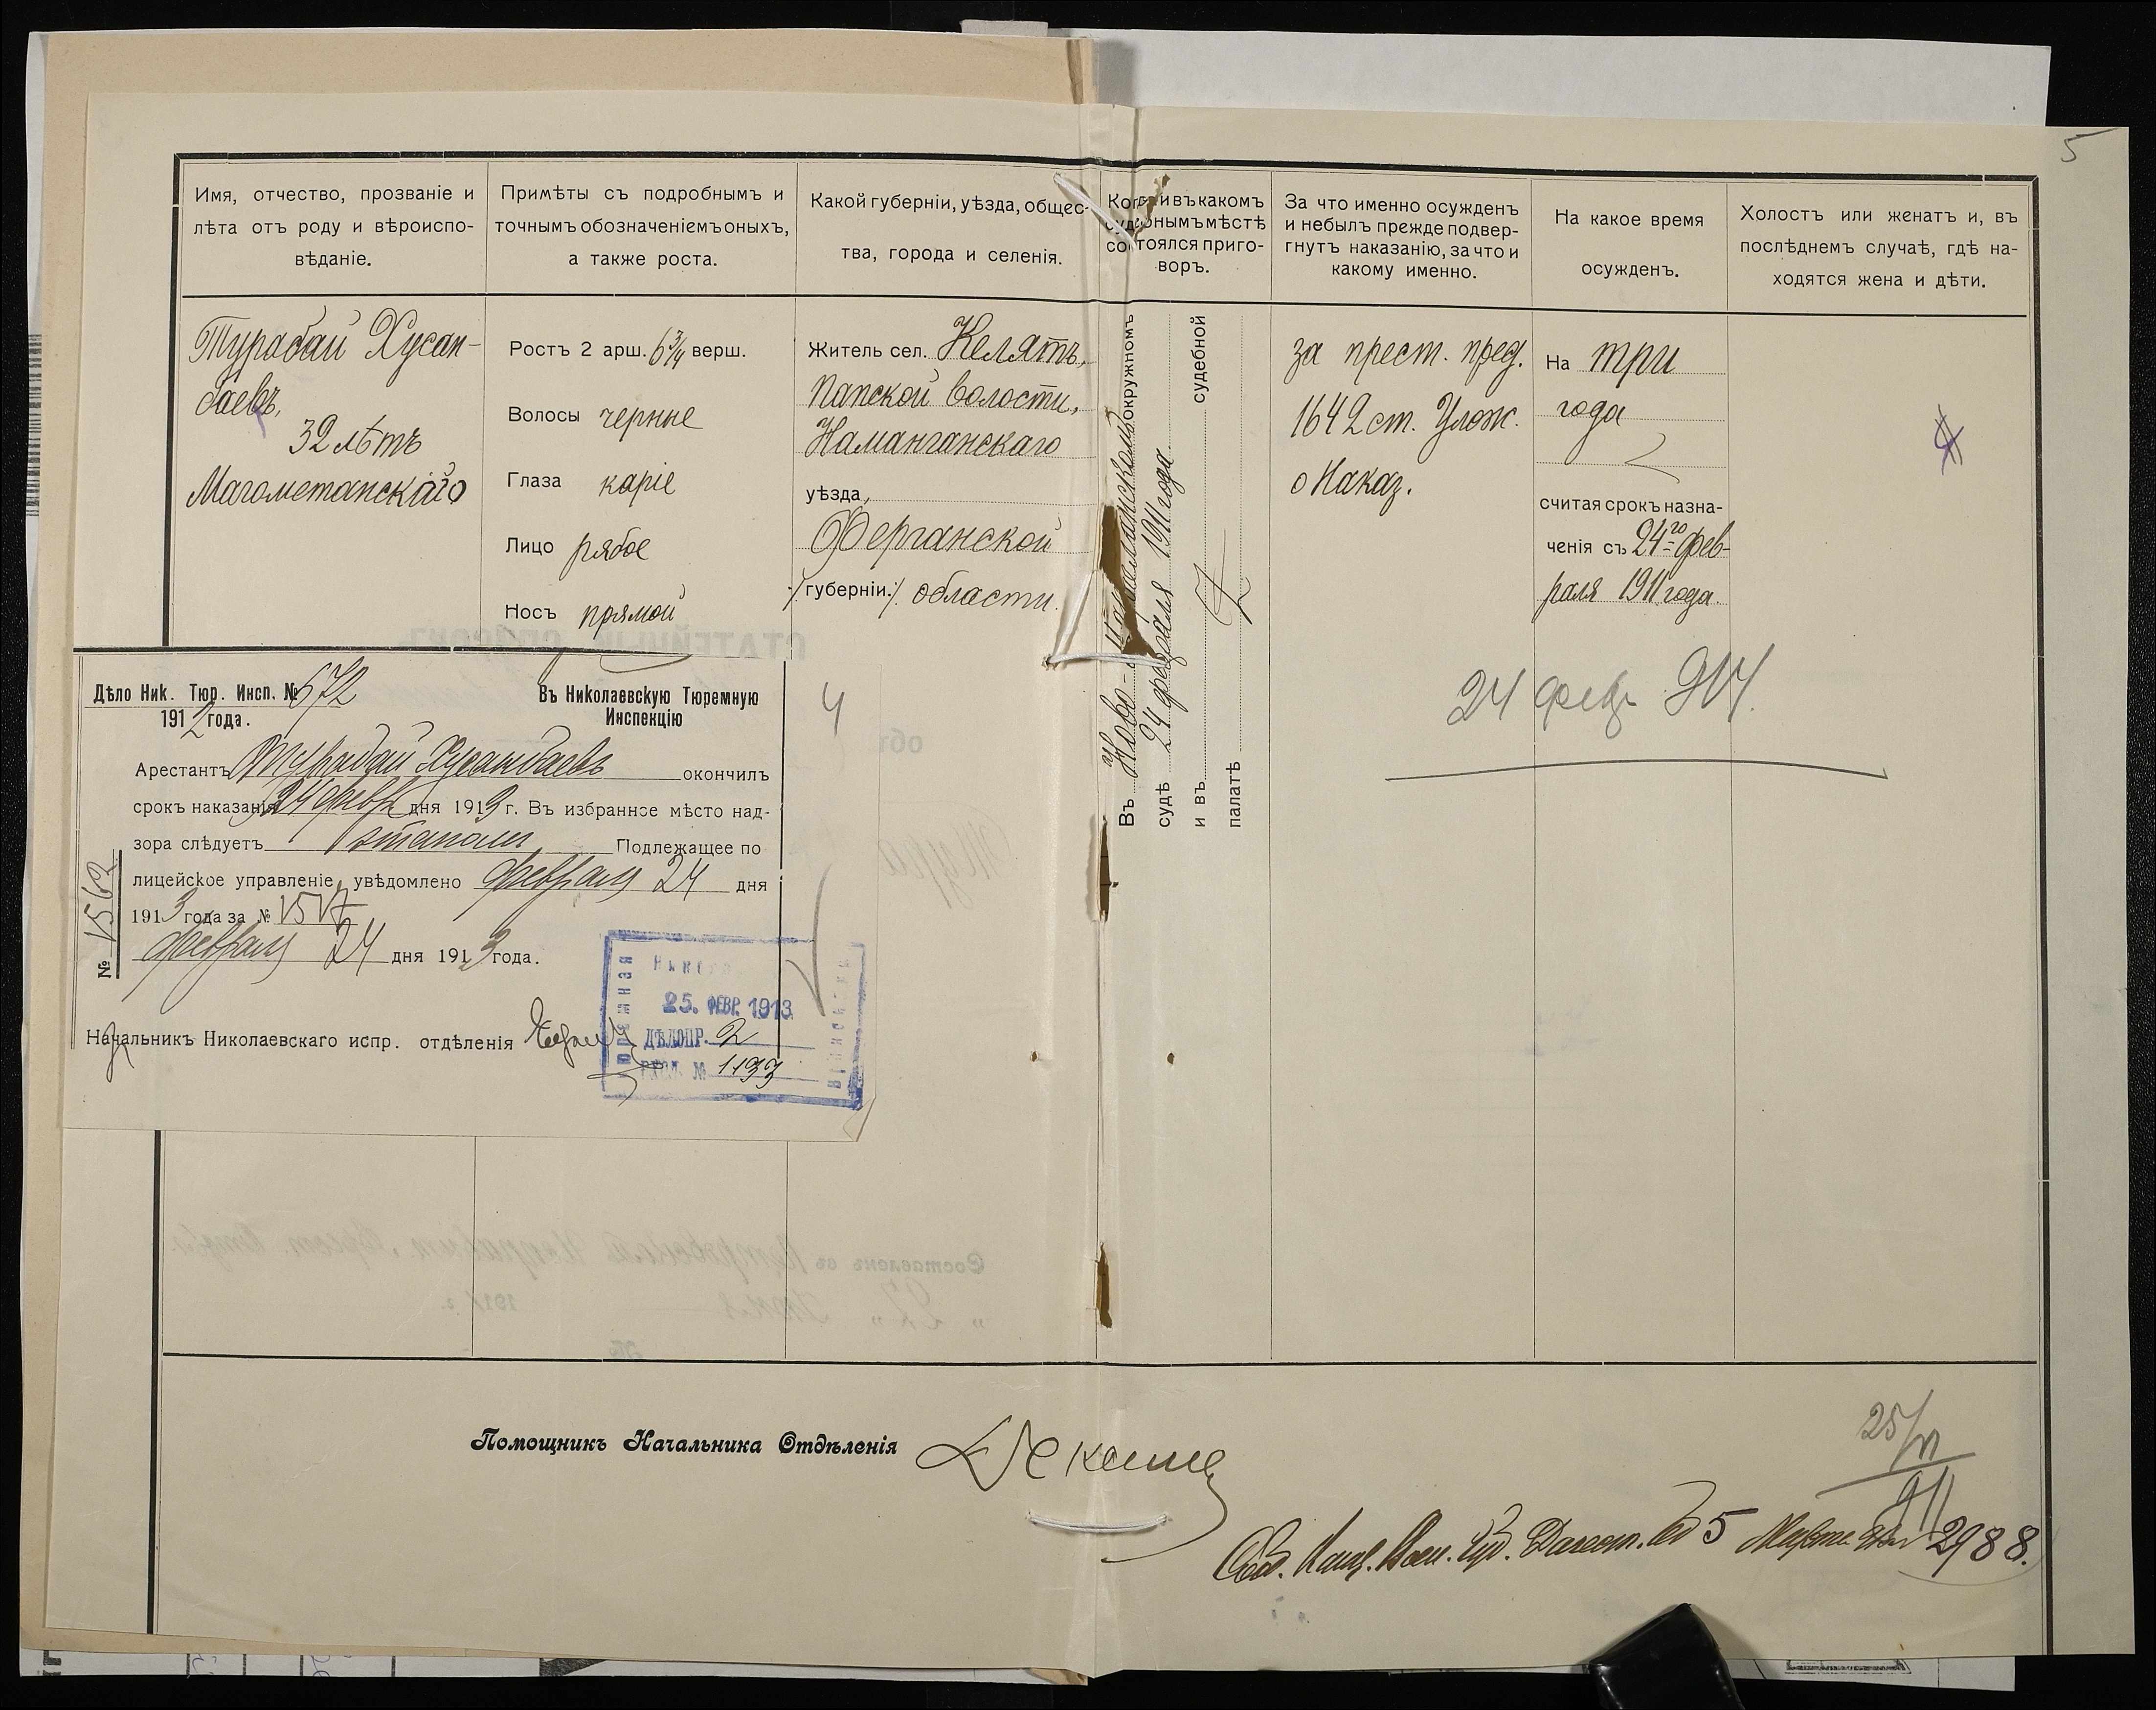 5
Имя, отчество, прозваніе и
лѣта отъ роду и вѣроиспо-
вѣданіе.
Примѣты съ подробнымъ и
точнымъ обозначеніемъ оныхъ,
а также роста.
Какой губерніи, уѣзда, общес-
тва, города и селенія.
Когда и въ какомъ
судебномъ мѣстѣ
состоялся приго-
воръ.
За что именно осужденъ
и небылъ прежде подвер-
гнутъ наказанію, за что и
какому именно.
На какое время
осужденъ.
Холостъ или женатъ и, въ
послѣднемъ случаѣ, гдѣ на-
ходятся жена и дѣти.
Турабай Хусан-
баевъ,
32 лѣтъ
Магометанскаго
Ростъ 2 арш. 6 3/4 верш.
Волосы черные
Глаза каріе
Лицо рябое
Носъ прямой
Житель сел. Келятъ,
Папской волости,
Наманганскаго
уѣзда,
Ферганской
губерніи. области.
Въ Ново-Маргеланскомъ окружномъ
судѣ 24 февраля 1911 года.
и въ судебной
палатѣ
за прест. пред.
1642 ст. Улож.
о Наказ.
На три
года
считая срокъ назна-
ченія съ 24го фев-
раля 1911 года.
24 февр 914.
4
Дѣло Ник. Тюр. Инсп. № 672
1912 года.
Въ Николаевскую Тюремную
Инспекцію
Арестантъ Турабай Хусанбаевъ окончилъ
срокъ наказанія 24 февр дня 1913 г. Въ избранное мѣсто над-
зора слѣдуетъ этапомъ Подлежащее по
лицейское управленіе увѣдомлено февраля 24 дня
1913 года за №
февраля 24 дня 1913 года.
№ 1562
Начальникъ Николаевскаго испр. отдѣленія
25. ФЕВР. 1913
ДѢЛОПР. 2
ВХОД. № 1133
Помощникъ Начальника Отдѣленія
25/VI
911
5 Марта 2988.